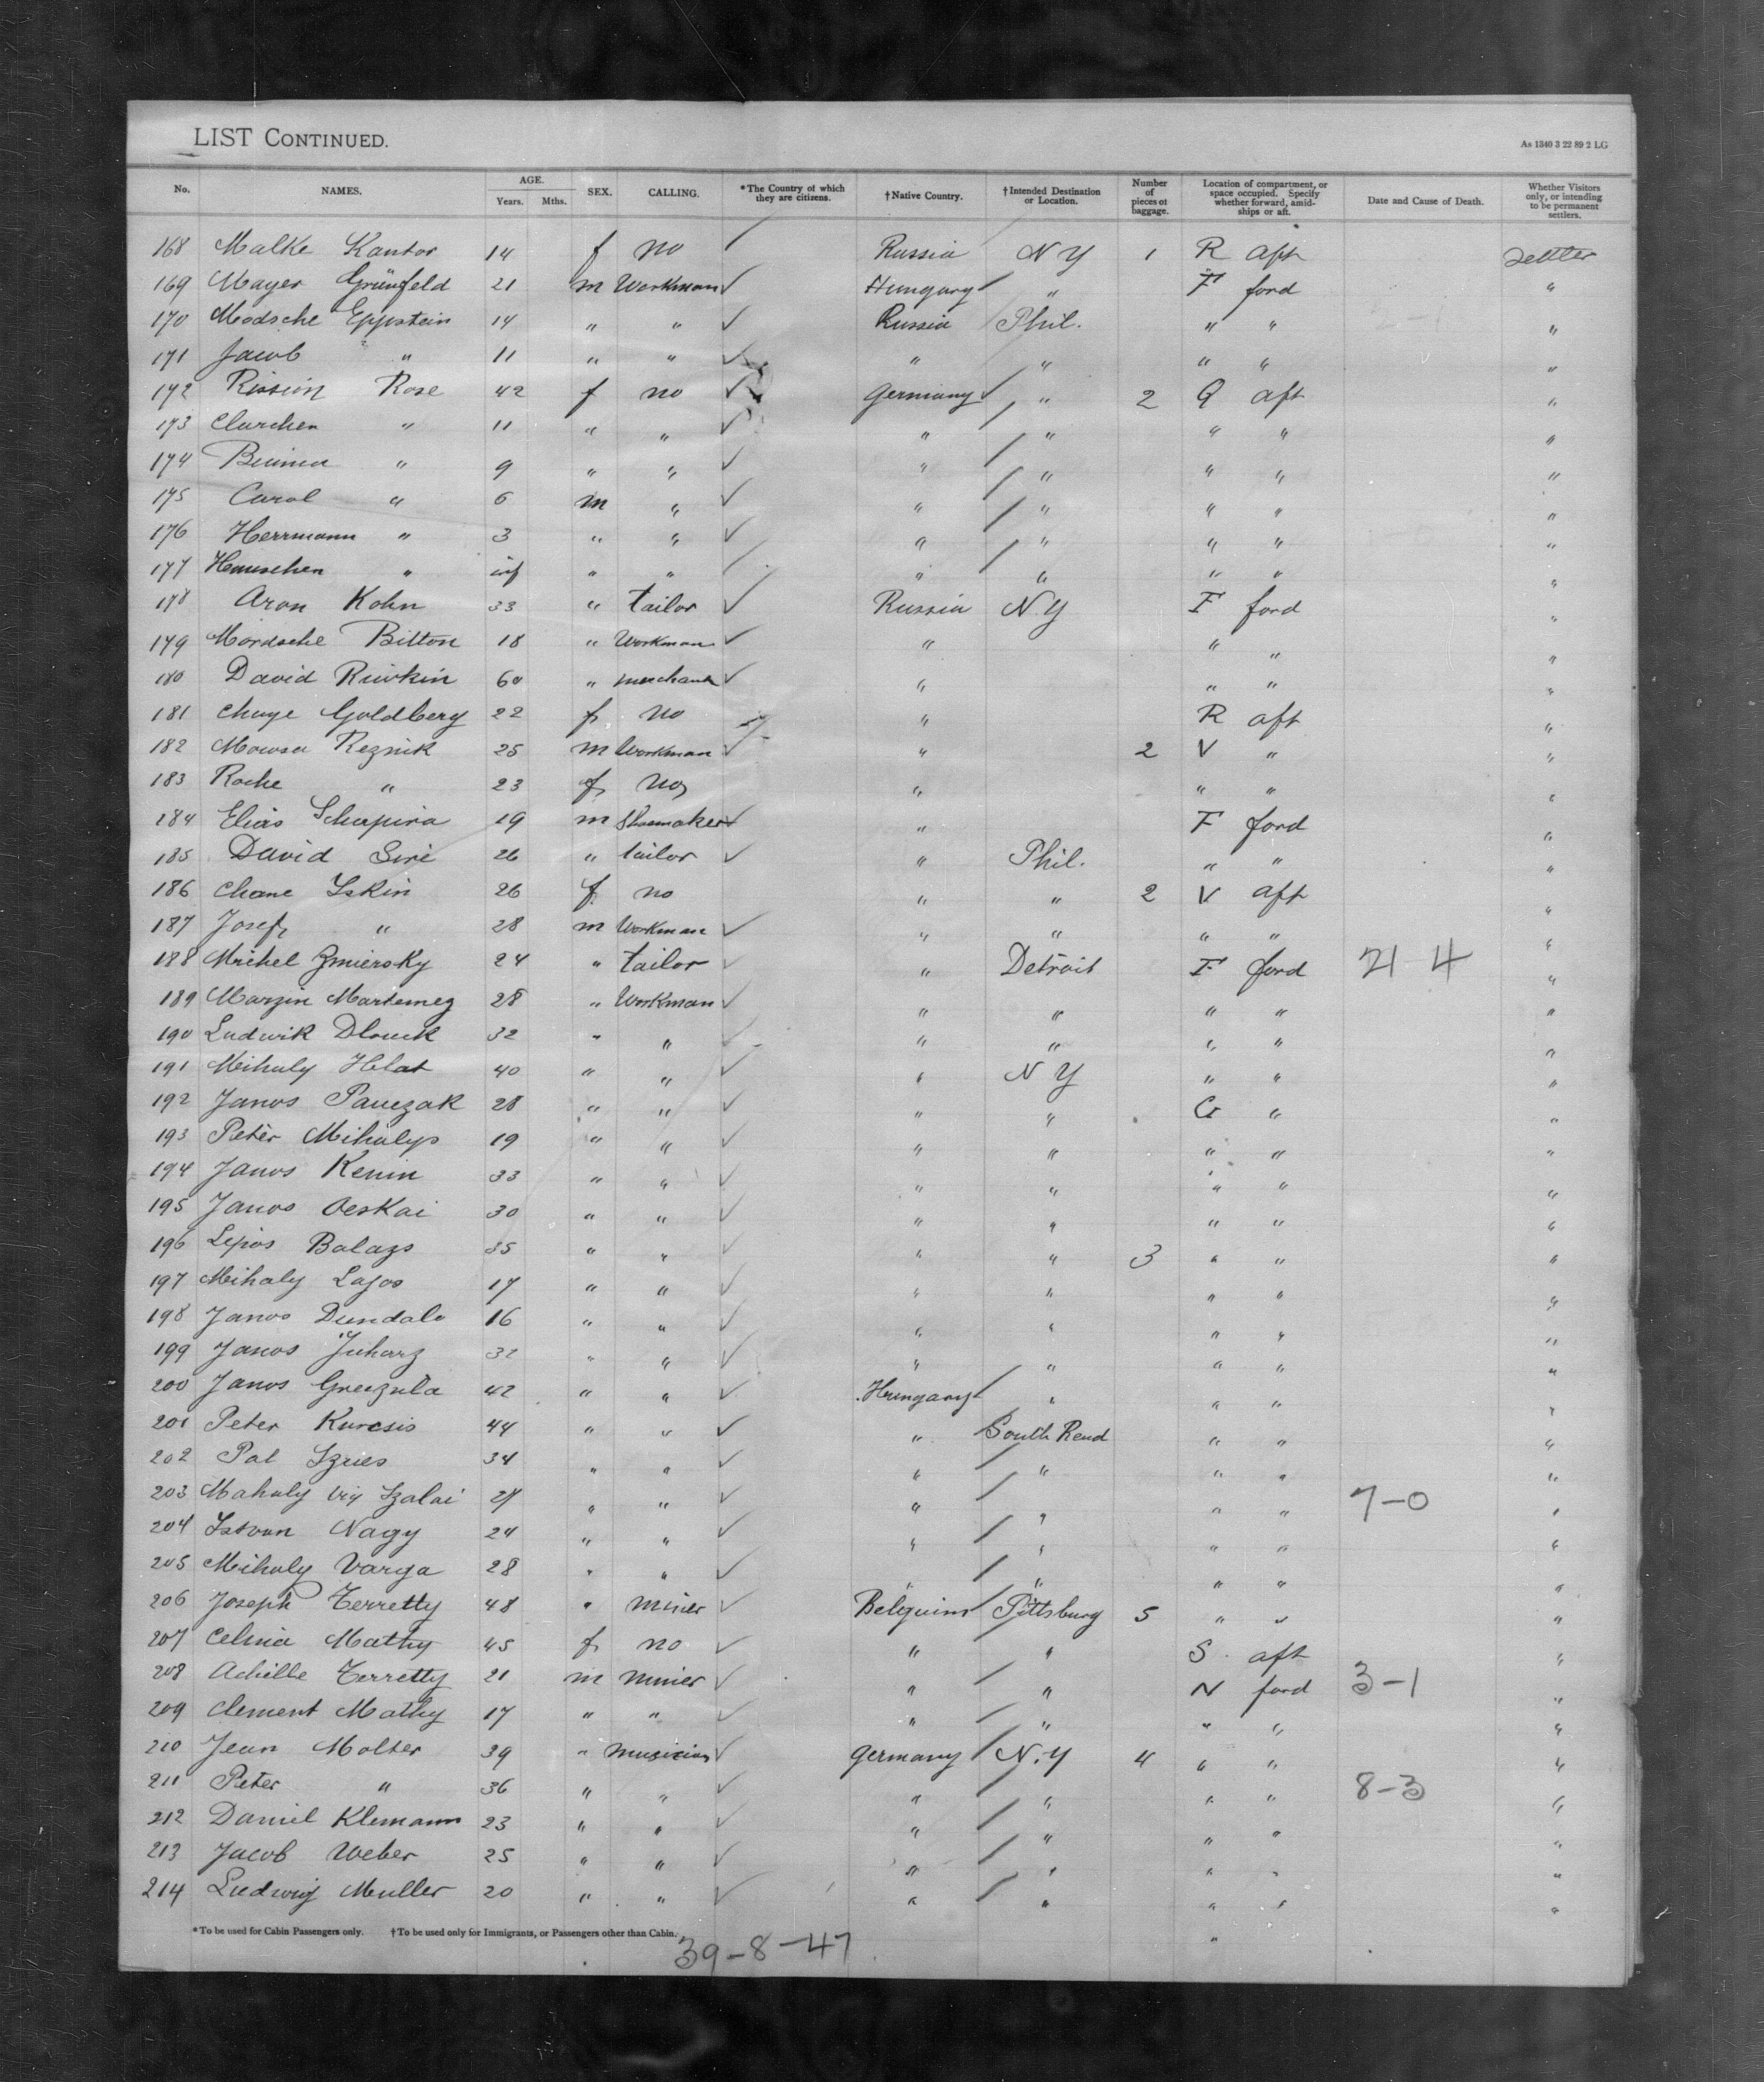 LIST CONTINUED.
As 1340 3 22 89 2 LG
No. NAMES. AGE. Years. Mths. SEX. CALLING. *The Country of which they are citizens. †Native Country. †Intended Destination or Location. Number of pieces of baggage. Location of compartment, or space occupied. Specify whether forward, amidships or aft. Date and Cause of Death. Whether Visitors only, or intending to be permanent settlers.
168 Malke Kantor 14 f no Russia N Y 1 R aft settler
169 Mayer Grünfeld 21 m Workman ✓ Hungary " F ford "
170 Modsche Eppstein 14 " " ✓ Russia Phil. " " "
171 Jacob " 11 " " ✓ " " " " "
172 Rose 42 f no ✓ Germany " 2 Q aft "
173 Clarchen " 11 " " ✓ " " " " "
174 " 9 " " ✓ " " " " "
175 Carol " 6 m " ✓ " " " " "
176 Herrmann " 3 " " ✓ " " " " "
177 " inf " " " " " " "
178 Aron Kohn 33 " tailor ✓ Russia N Y F ford "
179 Mordsche Bitton 18 " Workman ✓ " " " "
180 David Riwkin 60 " merchant ✓ " " " "
181 Chaye Goldberg 22 f no " R aft "
182 Mowsa Reznik 25 m Workman ✓ " 2 V " "
183 Roche " 23 f no " " " "
184 Elias Schapira 19 m Shoemaker ✓ " F ford "
185 David Siré 26 " tailor ✓ " Phil. " " "
186 Chane Iskin 26 f no " " 2 V aft "
187 Josef " 28 m Workman ✓ " " " " "
188 Michel Zmiersky 24 " tailor ✓ " Detroit F ford 21 4 "
189 Marzin Martemez 28 " Workman ✓ " " " " "
190 Ludwik Dlouck 32 " " ✓ " " " " "
191 Mihaly Hlat 40 " " ✓ " N Y " " "
192 Janos Pauczak 28 " " ✓ " " G " "
193 Peter Mihalyo 19 " " ✓ " " " " "
194 Janos Kenin 33 " " ✓ " " " " "
195 Janos Oeskai 30 " " ✓ " " " " "
196 Lepos Balazs 35 " " ✓ " " 3 " " "
197 Mihaly Lajos 17 " " ✓ " " " " "
198 Janos Dundalo 16 " " ✓ " " " " "
199 Janos Juharz 32 " " ✓ " " " " "
200 Janos Greczula 42 " " ✓ Hungary " " " "
201 Peter Kurcsis 44 " " ✓ " South Bend " " "
202 Pal 34 " " ✓ " " " " "
203 Mahaly Vig Szalai 27 " " ✓ " " " " 7-0 "
204 Istvan Nagy 24 " " ✓ " " " " "
205 Mihaly Varga 28 " " ✓ " " " " "
206 Joseph Terretty 48 " minier ✓ Belguim Pittsburg 5 " " "
207 Celina Mathy 45 f no ✓ " " S. aft "
208 Achille Terretty 21 m minier ✓ " " N ford 3-1 "
209 Clement Mathy 17 " " ✓ " " " " "
210 Jean Molter 39 " musician ✓ Germany N.Y 4 " " "
211 Peter " 36 " " ✓ " " " " 8-3 "
212 Daniel Klemann 23 " " ✓ " " " " "
213 Jacob Weber 25 " " ✓ " " " " "
214 Ludwig Muller 20 " " ✓ " " " " "
*To be used for Cabin Passengers only. †To be used only for Immigrants, or Passengers other than Cabin.
39-8-47